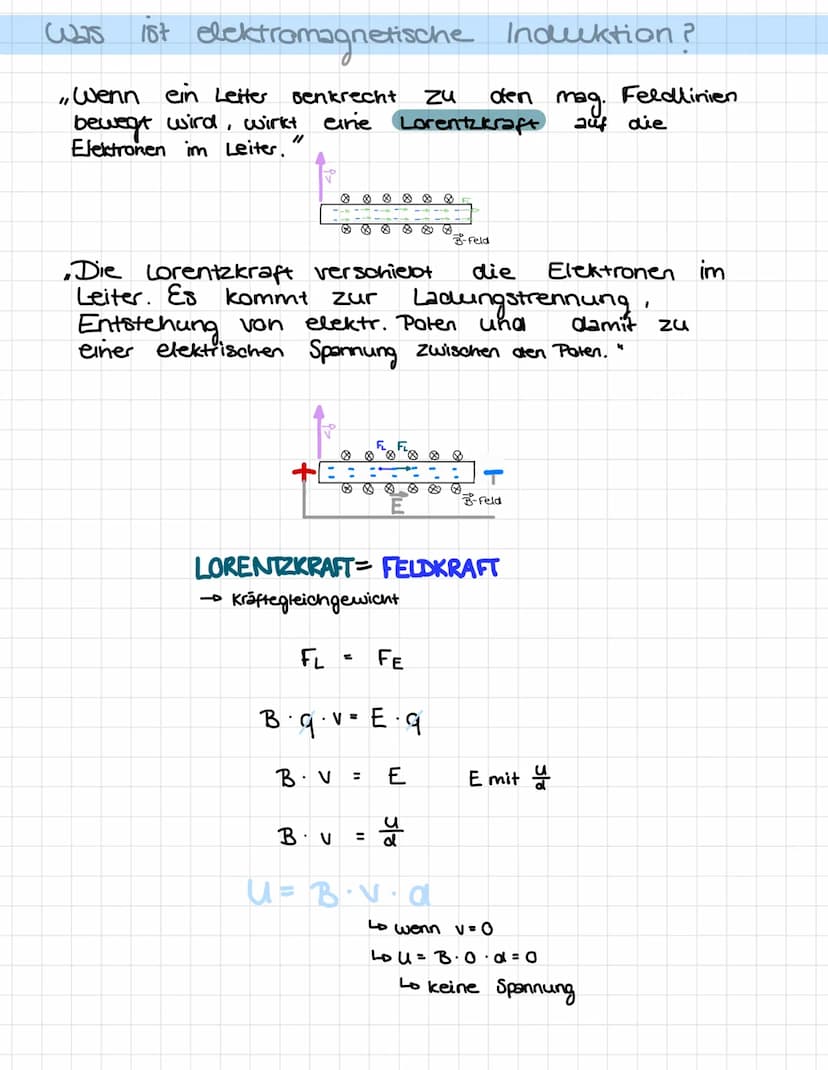 Was ist elektromagnetische Induktion?
„Wenn ein Leiter senkrecht zu den mag. Feldlinien
bewegt wird, wirkt eine Lorentzkraft auf die
Elektronen im Leiter."
v
F
B-Feld
„Die Lorentzkraft verschiebt die Elektronen im
Leiter. Es kommt zur Ladungstrennung,
Entstehung von elektr. Polen und damit zu
einer elektrischen Spannung zwischen den Polen."
v
FL FL
+ −
E
B-Feld
LORENTZKRAFT = FELDKRAFT
→ Kräftegleichgewicht
FL = FE
B · q · v = E · q
B · v = E E mit u/d
B · v = u/d
U = B · v · d
↳ wenn v = 0
↳ U = B · 0 · d = 0
↳ keine Spannung